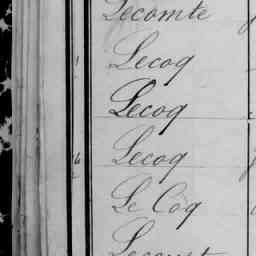 Lecomte
Lecoq
Lecoq
Lecoq
Le Coq